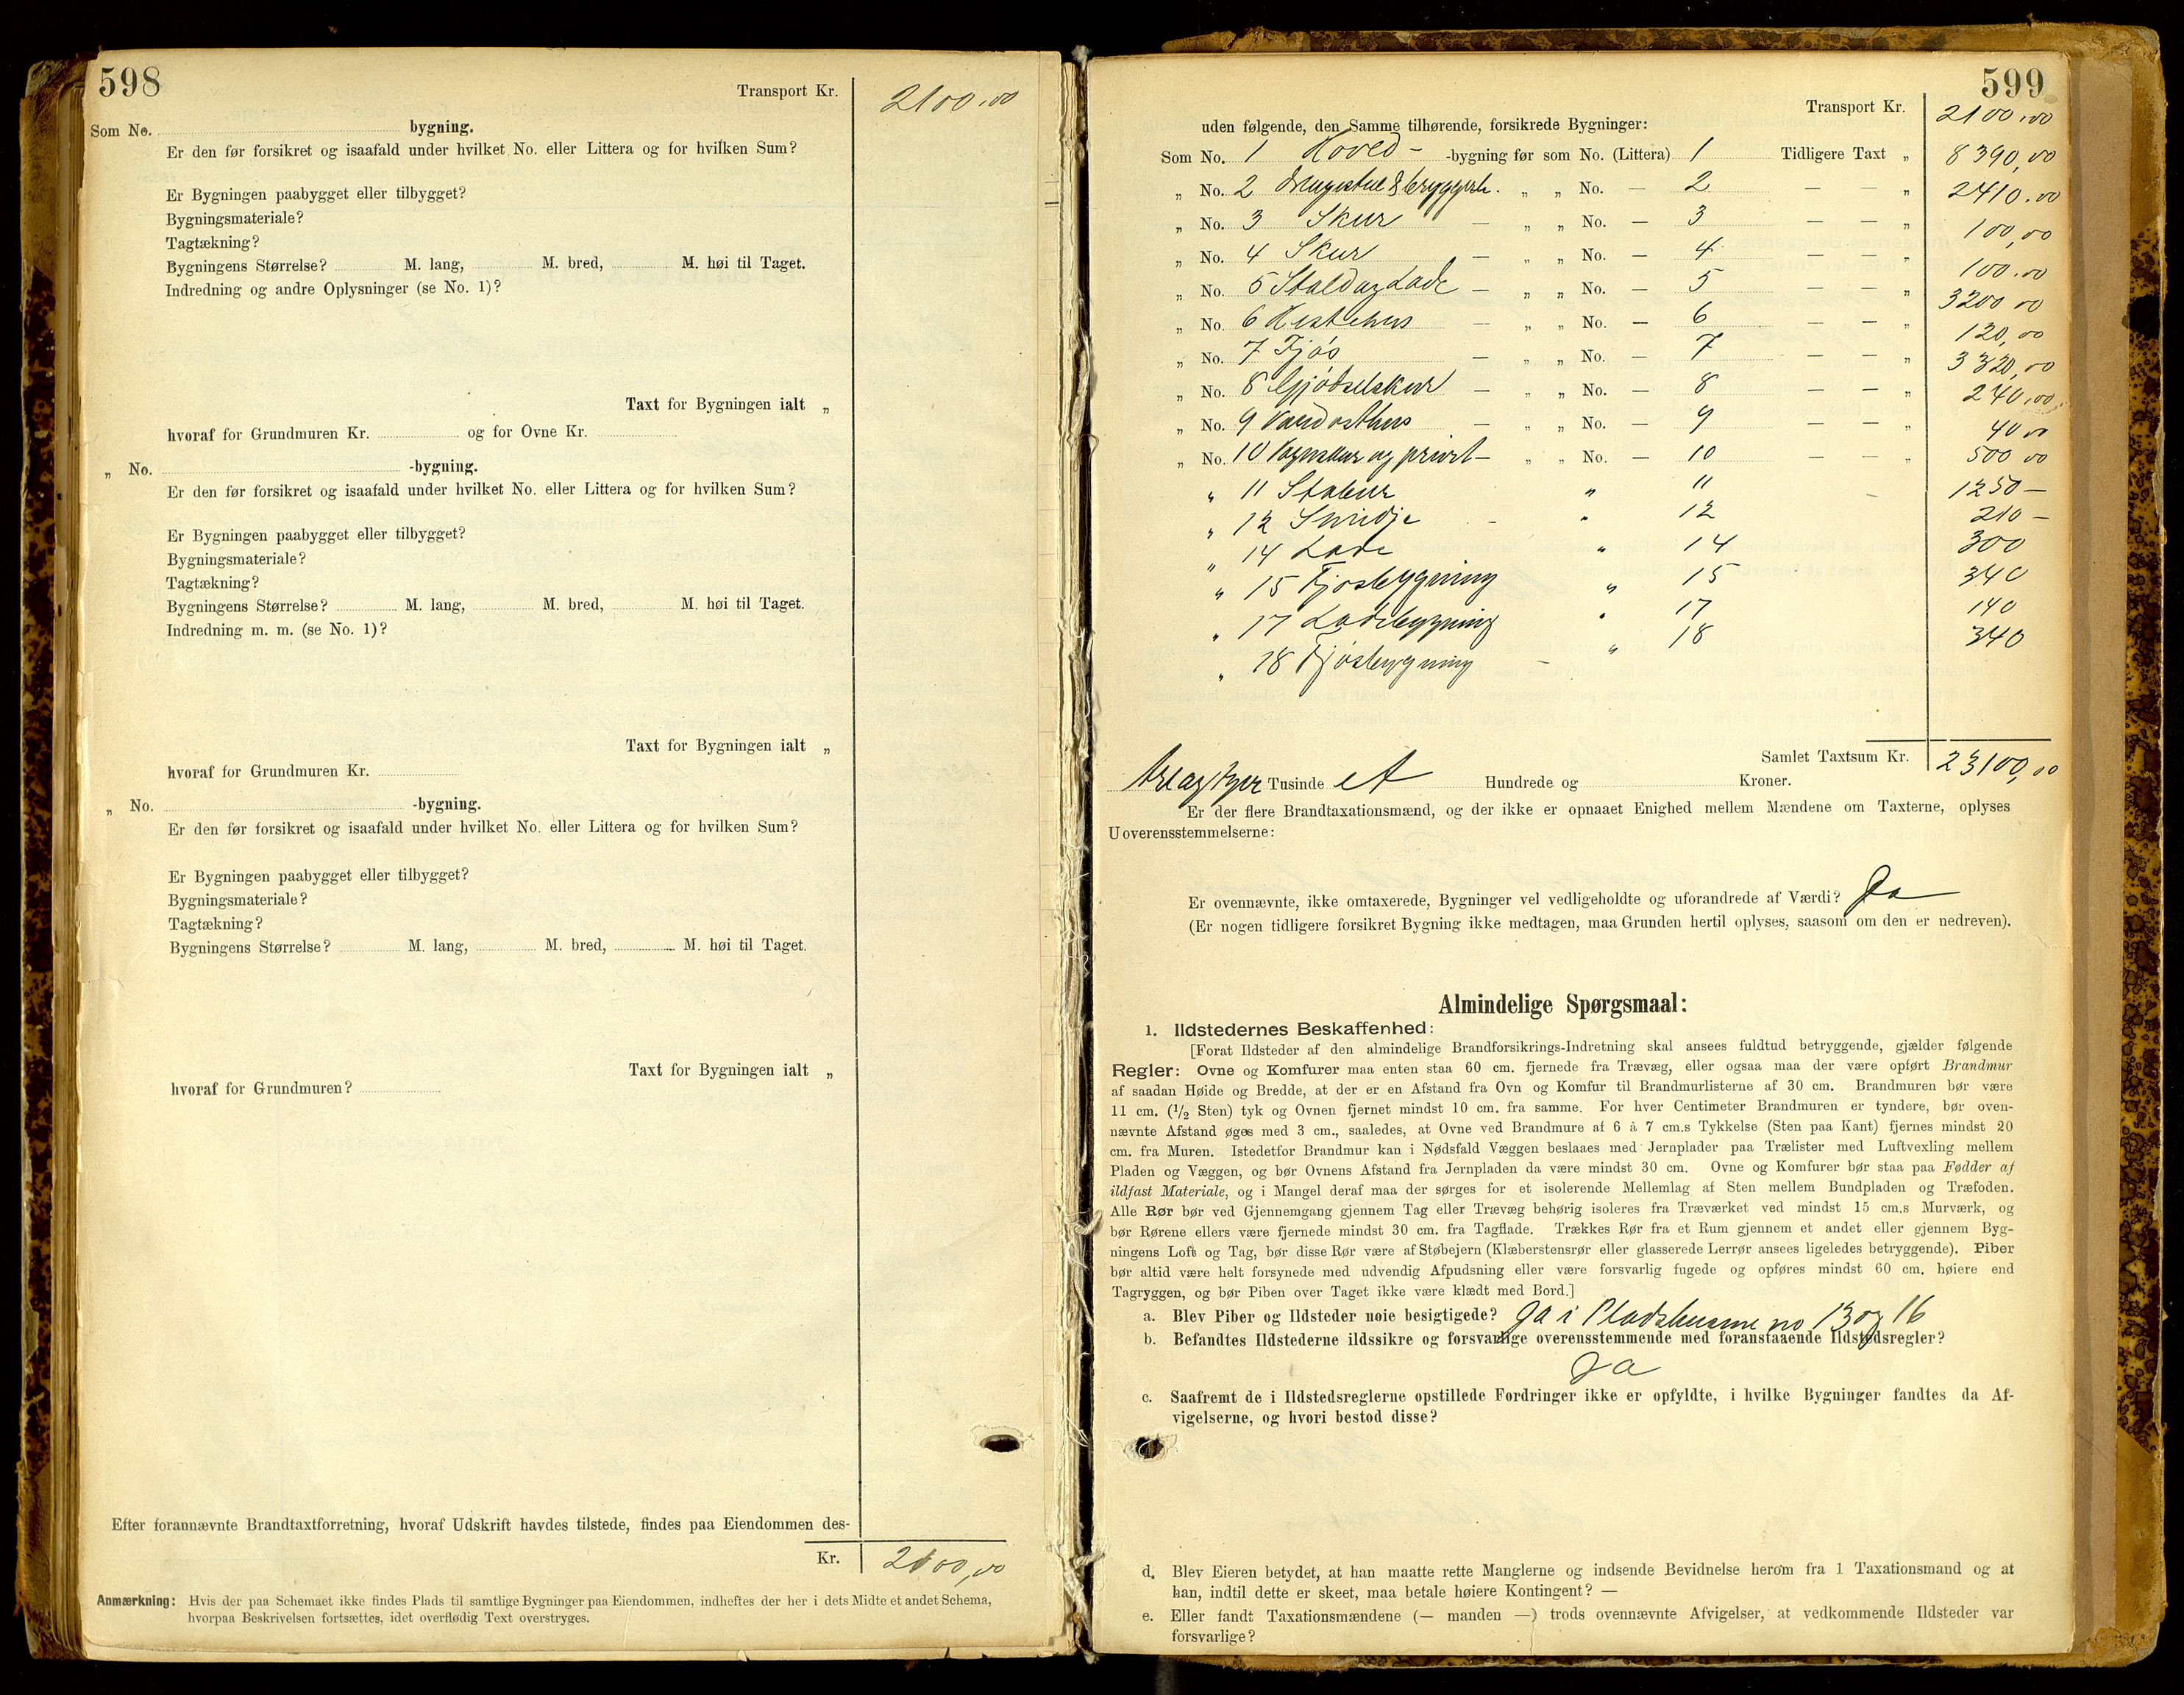 598
Transport Kr. 2100.00
Som No. bygning.
Er den før forsikret og isaafald under hvilket No. eller Littera og for hvilken Sum?
Er Bygningen paabygget eller tilbygget?
Bygningsmateriale?
Tagtækning?
Bygningens Størrelse? M. lang, M. bred, M. høi til Taget.
Indredning og andre Oplysninger (se No. 1)?
Taxt for Bygningen ialt „
hvoraf for Grundmuren Kr. og for Ovne Kr.
„ No. -bygning.
Er den før forsikret og isaafald under hvilket No. eller Littera og for hvilken Sum?
Er Bygningen paabygget eller tilbygget?
Bygningsmateriale?
Tagtækning?
Bygningens Størrelse? M. lang, M. bred, M. høi til Taget.
Indredning m. m. (se No. 1)?
Taxt for Bygningen ialt „
hvoraf for Grundmuren Kr.
„ No. -bygning.
Er den før forsikret og isaafald under hvilket No. eller Littera og for hvilken Sum?
Er Bygningen paabygget eller tilbygget?
Bygningsmateriale?
Tagtækning?
Bygningens Størrelse? M. lang, M. bred, M. høi til Taget.
Taxt for Bygningen ialt „
hvoraf for Grundmuren?
Efter forannævnte Brandtaxtforretning, hvoraf Udskrift havdes tilstede, findes paa Eiendommen des-
Kr. 2100,00
Anmærkning: Hvis der paa Schemaet ikke findes Plads til samtlige Bygninger paa Eiendommen, indheftes der her i dets Midte et andet Schema,
hvorpaa Beskrivelsen fortsættes, idet overflødig Text overstryges.
599
Transport Kr. 2100,00
uden følgende, den Samme tilhørende, forsikrede Bygninger:
Som No. 1 Hoved- -bygning før som No. (Littera) 1 Tidligere Taxt „ 8390,00
„ No. 2 & bryggerh. „ „ No. — 2 — — „ 2410.00
„ No. 3 Skur — „ „ No. — 3 — — „ 100,00
„ No. 4 Skur — „ „ No. — 4 — — „ 100.00
„ No. 5 Stald og Lade — „ „ No. — 5 — — „ 3200 00
„ No. 6 Hestehus — „ „ No. — 6 — — „ 120,00
„ No. 7 Fjøs — „ „ No. — 7 — — „ 3320,00
„ No. 8 Gjødselskur — „ „ No. — 8 — — „ 240,00
„ No. 9 — „ „ No. — 9 — — „ 40 00
„ No. 10 Vognskur og privet — „ „ No. — 10 — — „ 500 00
„ 11 Stabur „ 11 1250 —
„ 12 Smidje - „ 12 210 —
„ 14 Lade „ 14 300
„ 15 Fjosbygning „ 15 340
„ 17 Ladebygning „ 17 140
„ 18 Fjøsbygning - „ 18 340
Samlet Taxtsum Kr. 23100,00
treogtyve Tusinde et Hundrede og Kroner.
Er der flere Brandtaxationsmænd, og der ikke er opnaaet Enighed mellem Mændene om Taxterne, oplyses
Uoverensstemmelserne:
Er ovennævnte, ikke omtaxerede, Bygninger vel vedligeholdte og uforandrede af Værdi? Ja
(Er nogen tidligere forsikret Bygning ikke medtagen, maa Grunden hertil oplyses, saasom om den er nedreven).
Almindelige Spørgsmaal:
1. Ildstedernes Beskaffenhed:
[Forat Ildsteder af den almindelige Brandforsikrings-Indretning skal ansees fuldtud betryggende, gjælder følgende
Regler: Ovne og Komfurer maa enten staa 60 cm. fjernede fra Trævæg, eller ogsaa maa der være opført Brandmur
af saadan Høide og Bredde, at der er en Afstand fra Ovn og Komfur til Brandmurlisterne af 30 cm. Brandmuren bør være
11 cm. (1/2 Sten) tyk og Ovnen fjernet mindst 10 cm. fra samme. For hver Centimeter Brandmuren er tyndere, bør oven-
nævnte Afstand øges med 3 cm., saaledes, at Ovne ved Brandmure af 6 à 7 cm.s Tykkelse (Sten paa Kant) fjernes mindst 20
cm. fra Muren. Istedetfor Brandmur kan i Nødsfald Væggen beslaaes med Jernplader paa Trælister med Luftvexling mellem
Pladen og Væggen, og bør Ovnens Afstand fra Jernpladen da være mindst 30 cm. Ovne og Komfurer bør staa paa Fødder af
ildfast Materiale, og i Mangel deraf maa der sørges for et isolerende Mellemlag af Sten mellem Bundpladen og Træfoden.
Alle Rør bør ved Gjennemgang gjennem Tag eller Trævæg behørig isoleres fra Træværket ved mindst 15 cm.s Murværk, og
bør Rørene ellers være fjernede mindst 30 cm. fra Tagflade. Trækkes Rør fra et Rum gjennem et andet eller gjennem Byg-
ningens Loft og Tag, bør disse Rør være af Støbejern (Klæberstensrør eller glasserede Lerrør ansees ligeledes betryggende). Piber
bør altid være helt forsynede med udvendig Afpudsning eller være forsvarlig fugede og opføres mindst 60 cm. høiere end
Tagryggen, og bør Piben over Taget ikke være klædt med Bord.]
a. Blev Piber og Ildsteder nøie besigtigede? Ja i Pladshusene no 13 og 16
b. Befandtes Ildstederne ildssikre og forsvarlige overensstemmende med foranstaaende Ildstedsregler?
Ja
c. Saafremt de i Ildstedsreglerne opstillede Fordringer ikke er opfyldte, i hvilke Bygninger fandtes da Af-
vigelserne, og hvori bestod disse?
d. Blev Eieren betydet, at han maatte rette Manglerne og indsende Bevidnelse herom fra 1 Taxationsmand og at
han, indtil dette er skeet, maa betale høiere Kontingent? —
e. Eller fandt Taxationsmændene (— manden —) trods ovennævnte Afvigelser, at vedkommende Ildsteder var
forsvarlige?